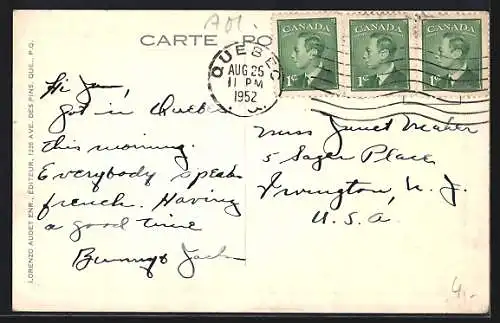 A01.
CARTE PO
QUEBEC
AUG 25
11 PM
1952
CANADA
1¢
CANADA
1¢
CANADA
1¢
LORENZO AUDET ENR., ÉDITEUR, 1225 AVE. DES PINS, QUE., P.Q.
Hi Jan,
Got in Quebec
this morning.
Everybody speaks
french. Having
a good time
Bunny & Jack
Miss Janet Meader
5 Sager Place
Irvington, N. J.
U.S.A.
4,-